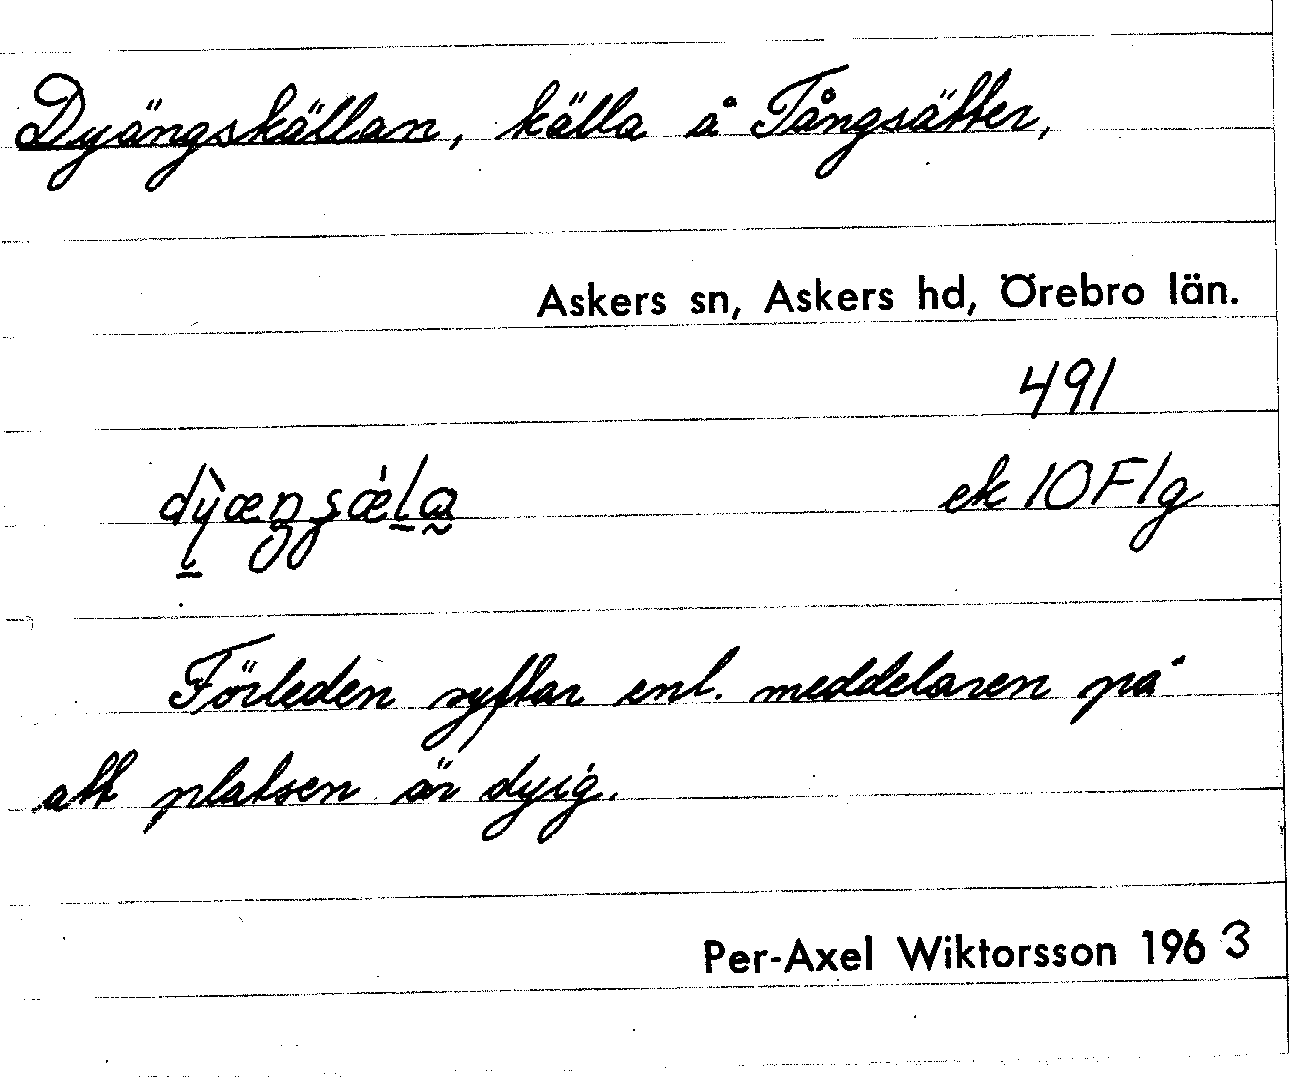 Dyängskällan, källa å Tångsätter,
Askers sn, Askers hd, Örebro län.
491
ek 10 F 1g
Förleden syftar enl. meddelaren på
att platsen är dyig.
Per-Axel Wiktorsson 1963